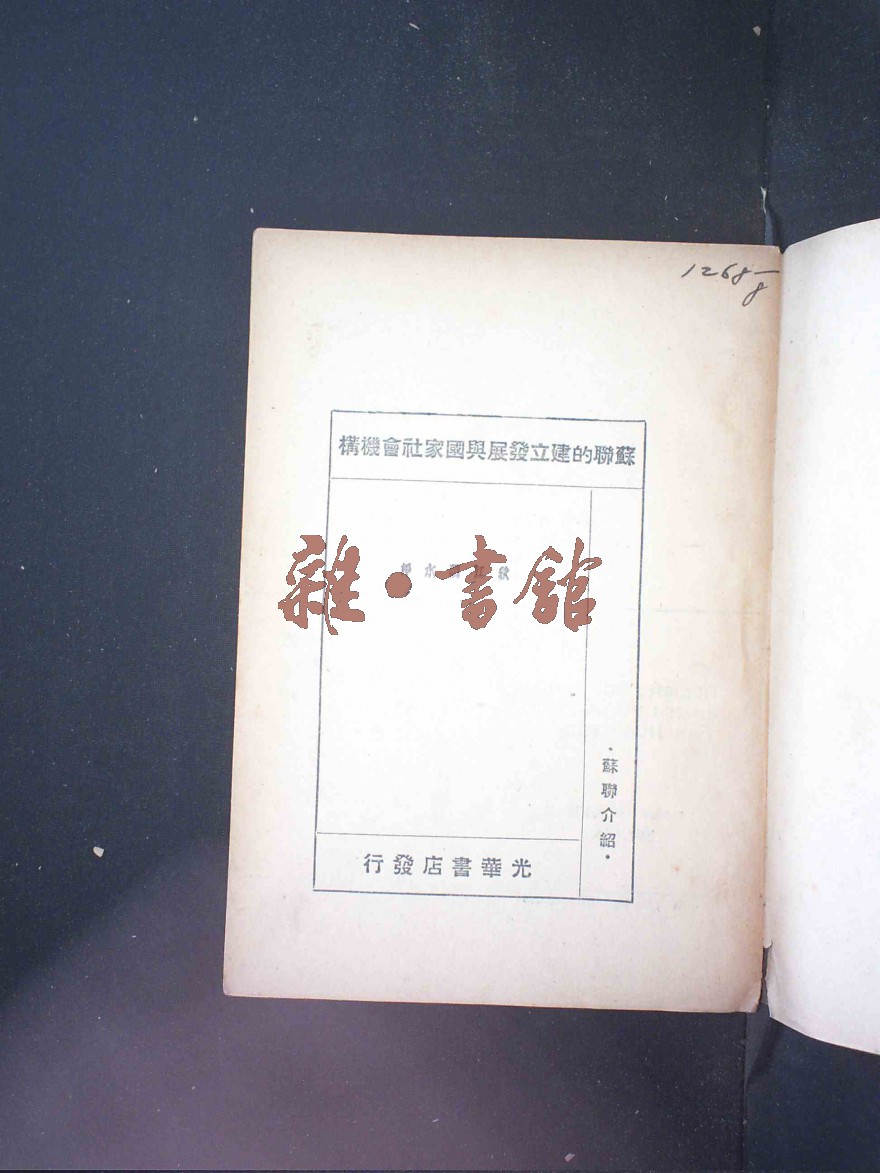 1268-8
蘇聯的建立發展與國家社會機構
雜·書館
·蘇聯介紹·
光華書店發行